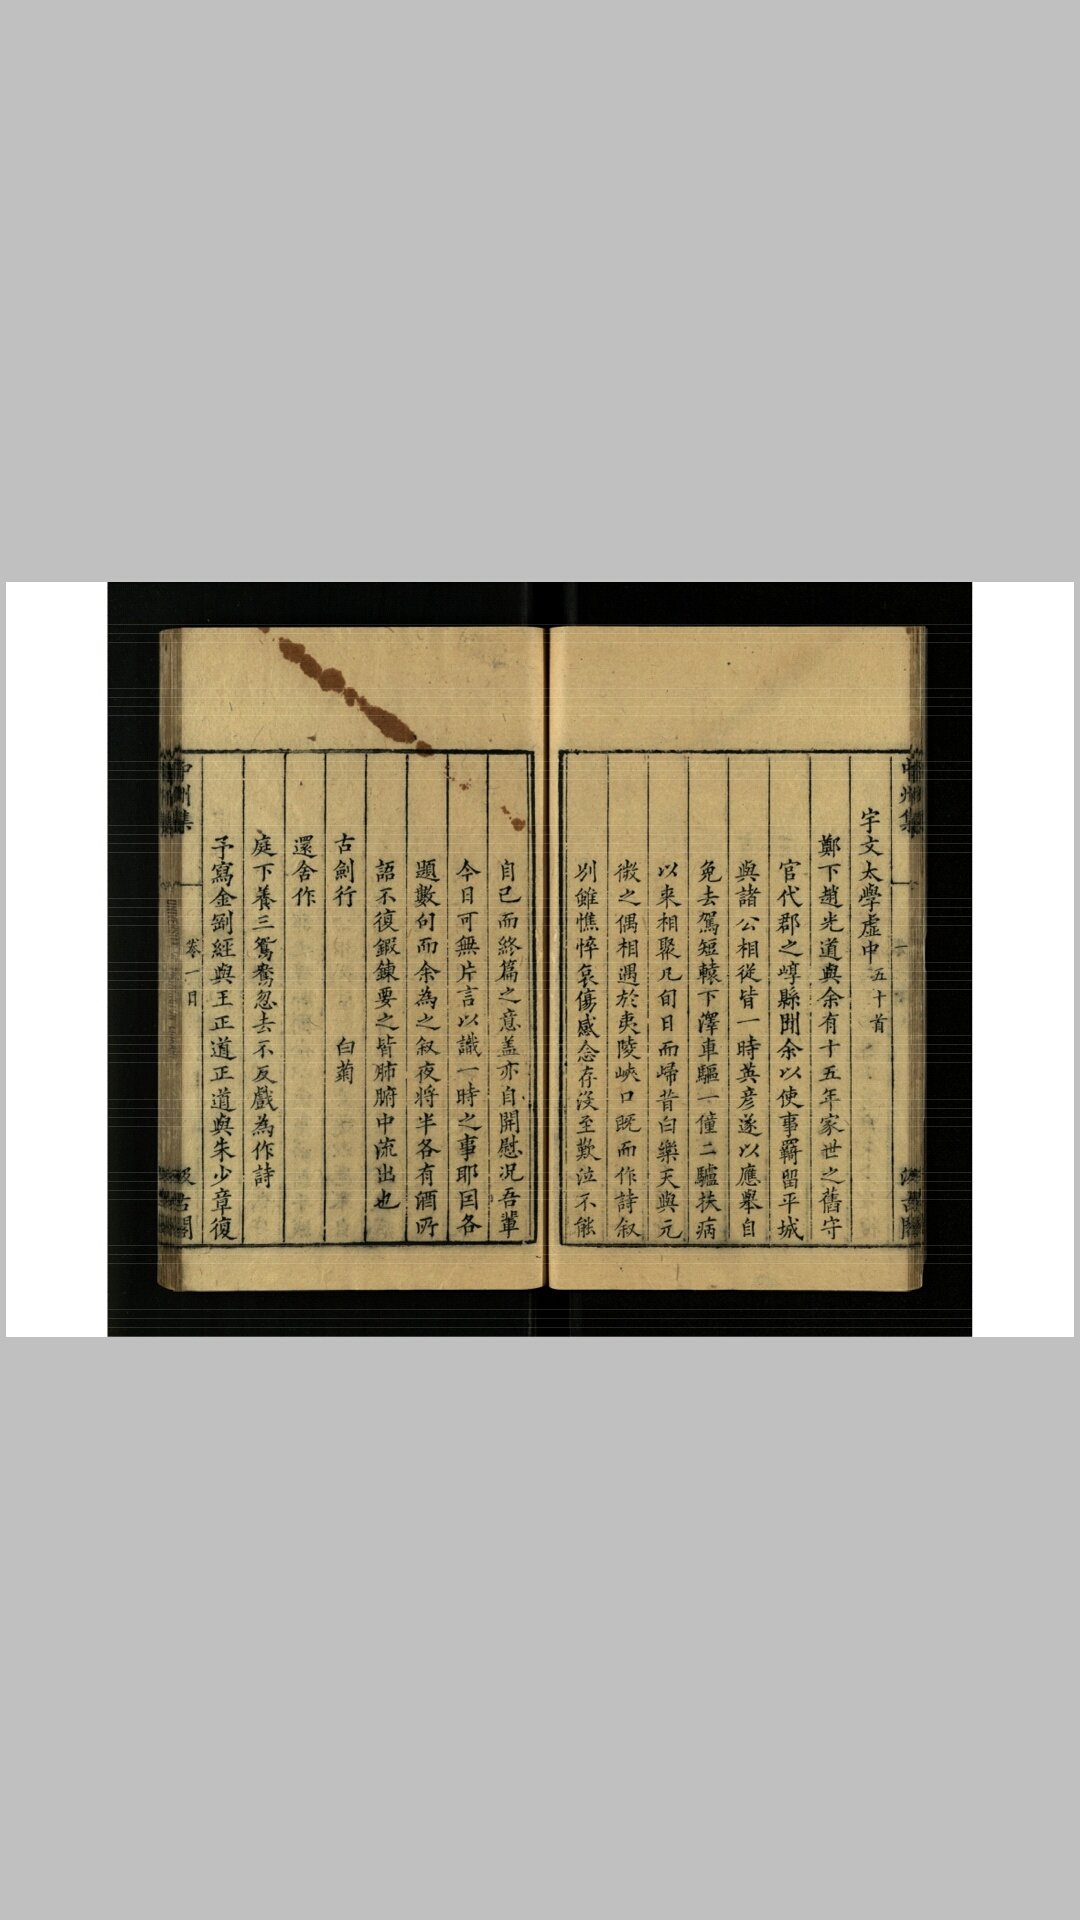 中州集
宇文太學虛中五十首
鄭下趙光道與余有十五年家世之舊守
官代郡之崞縣聞余以使事羈留平城
與諸公相從皆一時英彦遂以應舉自
免去駕短轅下澤車驅一僮二驢扶病
以来相聚凡旬日而歸昔白樂天與元
微之偶相遇於夷陵峽口既而作詩叙
別雖憔悴哀傷感念存沒至歎泣不能
自已而終篇之意盖亦自開慰况吾輩
今日可無片言以識一時之事耶因各
題數句而余為之叙夜將半各有酒所
語不復鍛鍊要之皆肺腑中流出也
古劍行
白菊
還舍作
庭下養三鴛鴦忽去不反戲為作詩
予寫金剛經與王正道正道與朱少章復
中州集
卷一目
汲古閣